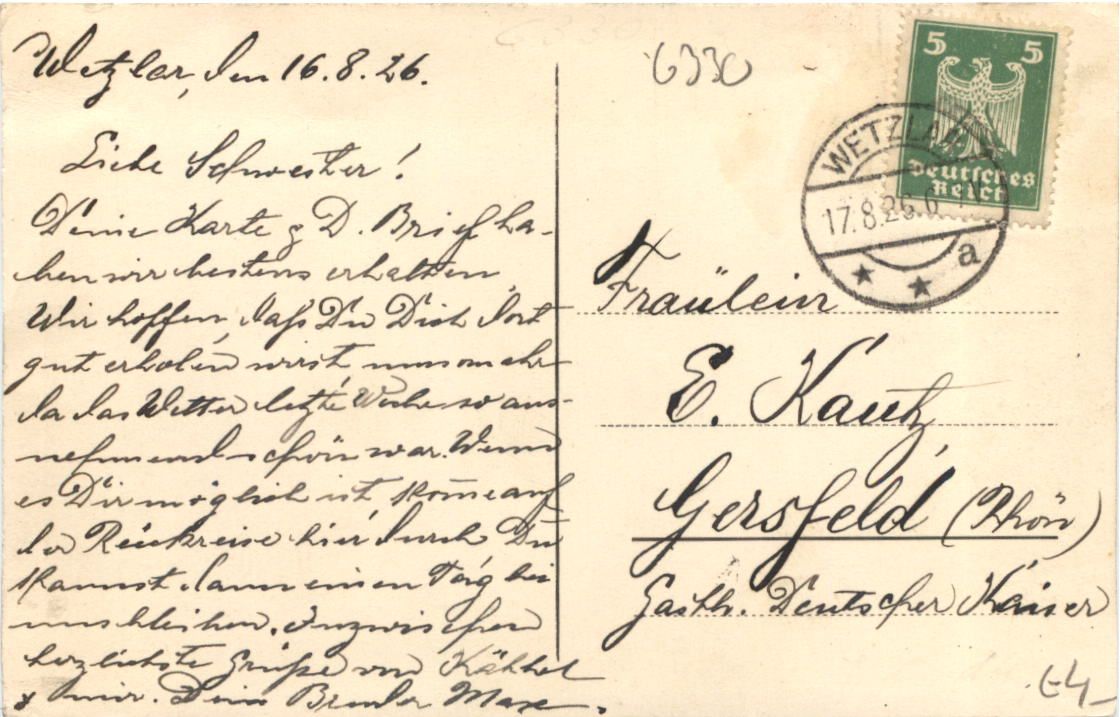 Wetzlar, den 16.8.26.
Liebe Schwester!
Deine Karte & D. Brief ha-
ben wir bestens erhalten
Wir hoffen, daß Du Dich dort
gut erholen wirst umsomehr
da das Wetter letzte Woche so aus-
nehmend schön war. Wenn
es Dir möglich ist, kom̄e auf
der Rückreise hier durch Du
kannst dann einen Tag bei
uns bleiben. Inzwischen
herzlichste Grüße von
& mir. Dein Bruder Max.
6330
6330
5 5
Deutsches
Reich
WETZLAR
17.8.26.6
a
Fräulein
E. Kautz,
Gersfeld (Rhön)
Gasth. Deutscher Kaiser